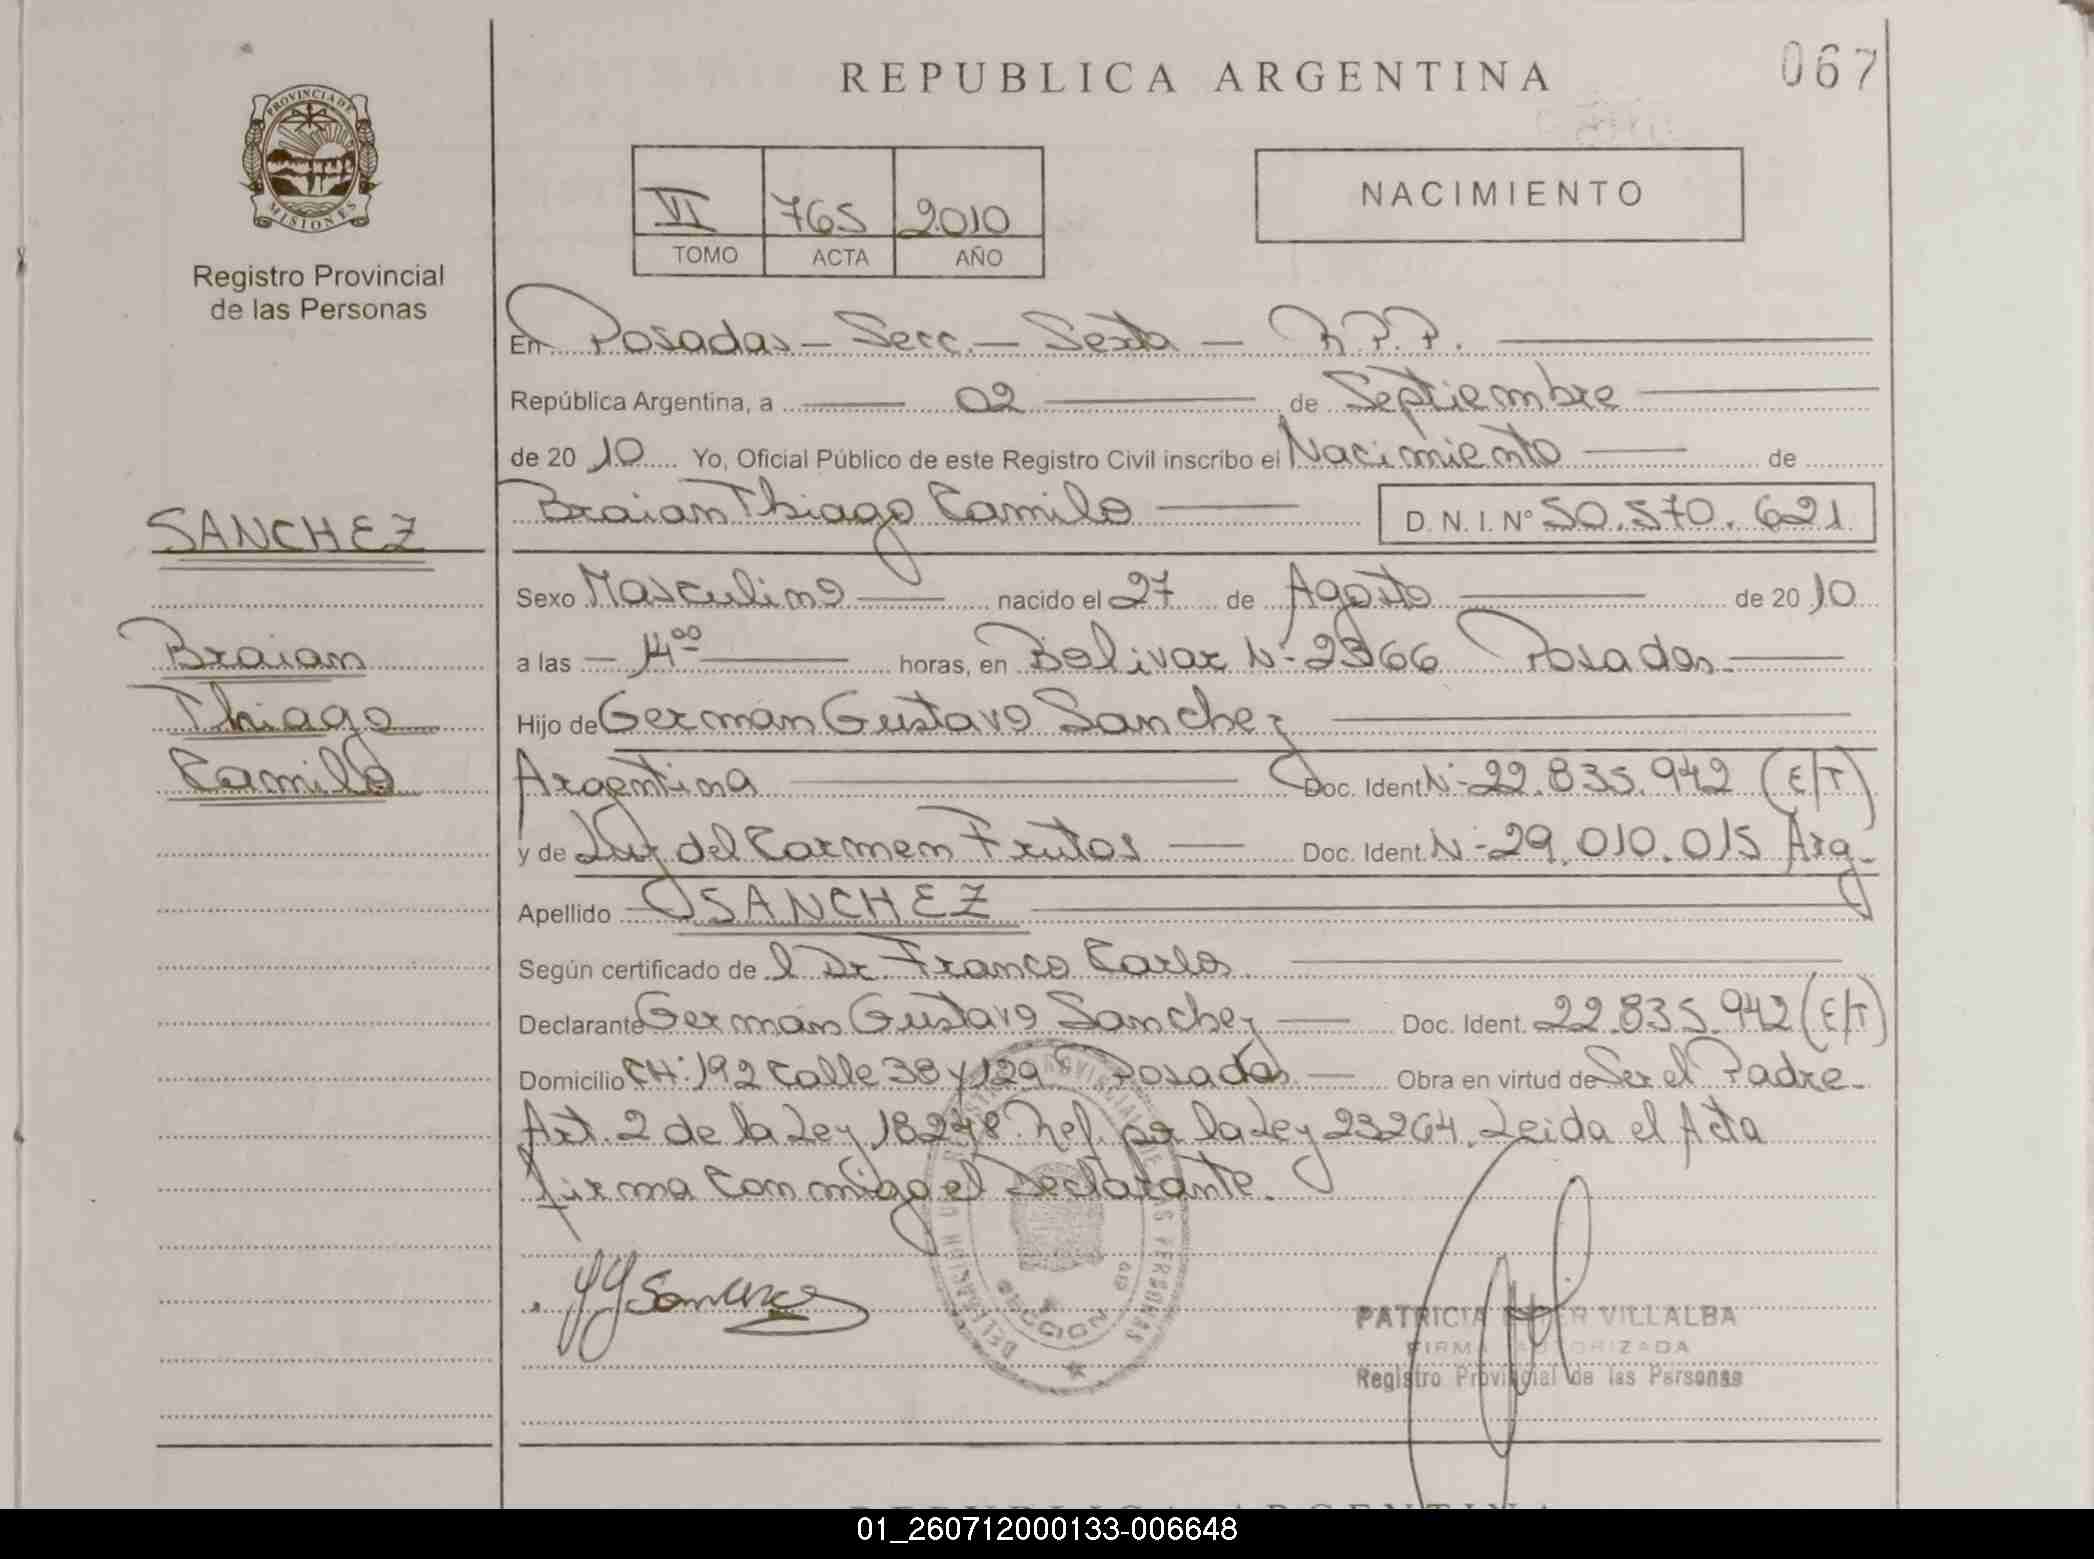 REPUBLICA ARGENTINA
067
PROVINCIA DE
MISIONES
Registro Provincial
de las Personas
VI 765 2010
TOMO ACTA AÑO
NACIMIENTO
En Posadas – Secc. – Sexta – R.P.P.
República Argentina, a 02 de Septiembre
de 2010 Yo, Oficial Público de este Registro Civil inscribo el Nacimiento de
Braian Thiago Camilo D. N. I. Nº 50.570.621
SANCHEZ
Braian
Thiago
Camilo
Sexo Masculino nacido el 27 de Agosto de 2010
a las 14⁰⁰ horas, en Bolivar Nº 2366 Posadas
Hijo de Germán Gustavo Sanchez
Argentina Doc. Ident Nº 22.835.942 (E/T)
y de Luz del Carmen Frutos Doc. Ident. Nº 29.010.015 Arg
Apellido SANCHEZ
Según certificado de l Dr. Franco Carlos
Declarante Germán Gustavo Sanchez Doc. Ident. 22.835.942 (E/T)
Domicilio CH: 192 Calle 38 y 129 Posadas Obra en virtud de Ser el Padre
Art. 2 de la Ley 18248. Ref. por la Ley 23264. Leida el Acta
firma conmigo el Declarante.
PATRICIA VILLALBA
FIRMA AUTORIZADA
Registro Provincial de las Personas
REPUBLICA ARGENTINA
01_260712000133-006648